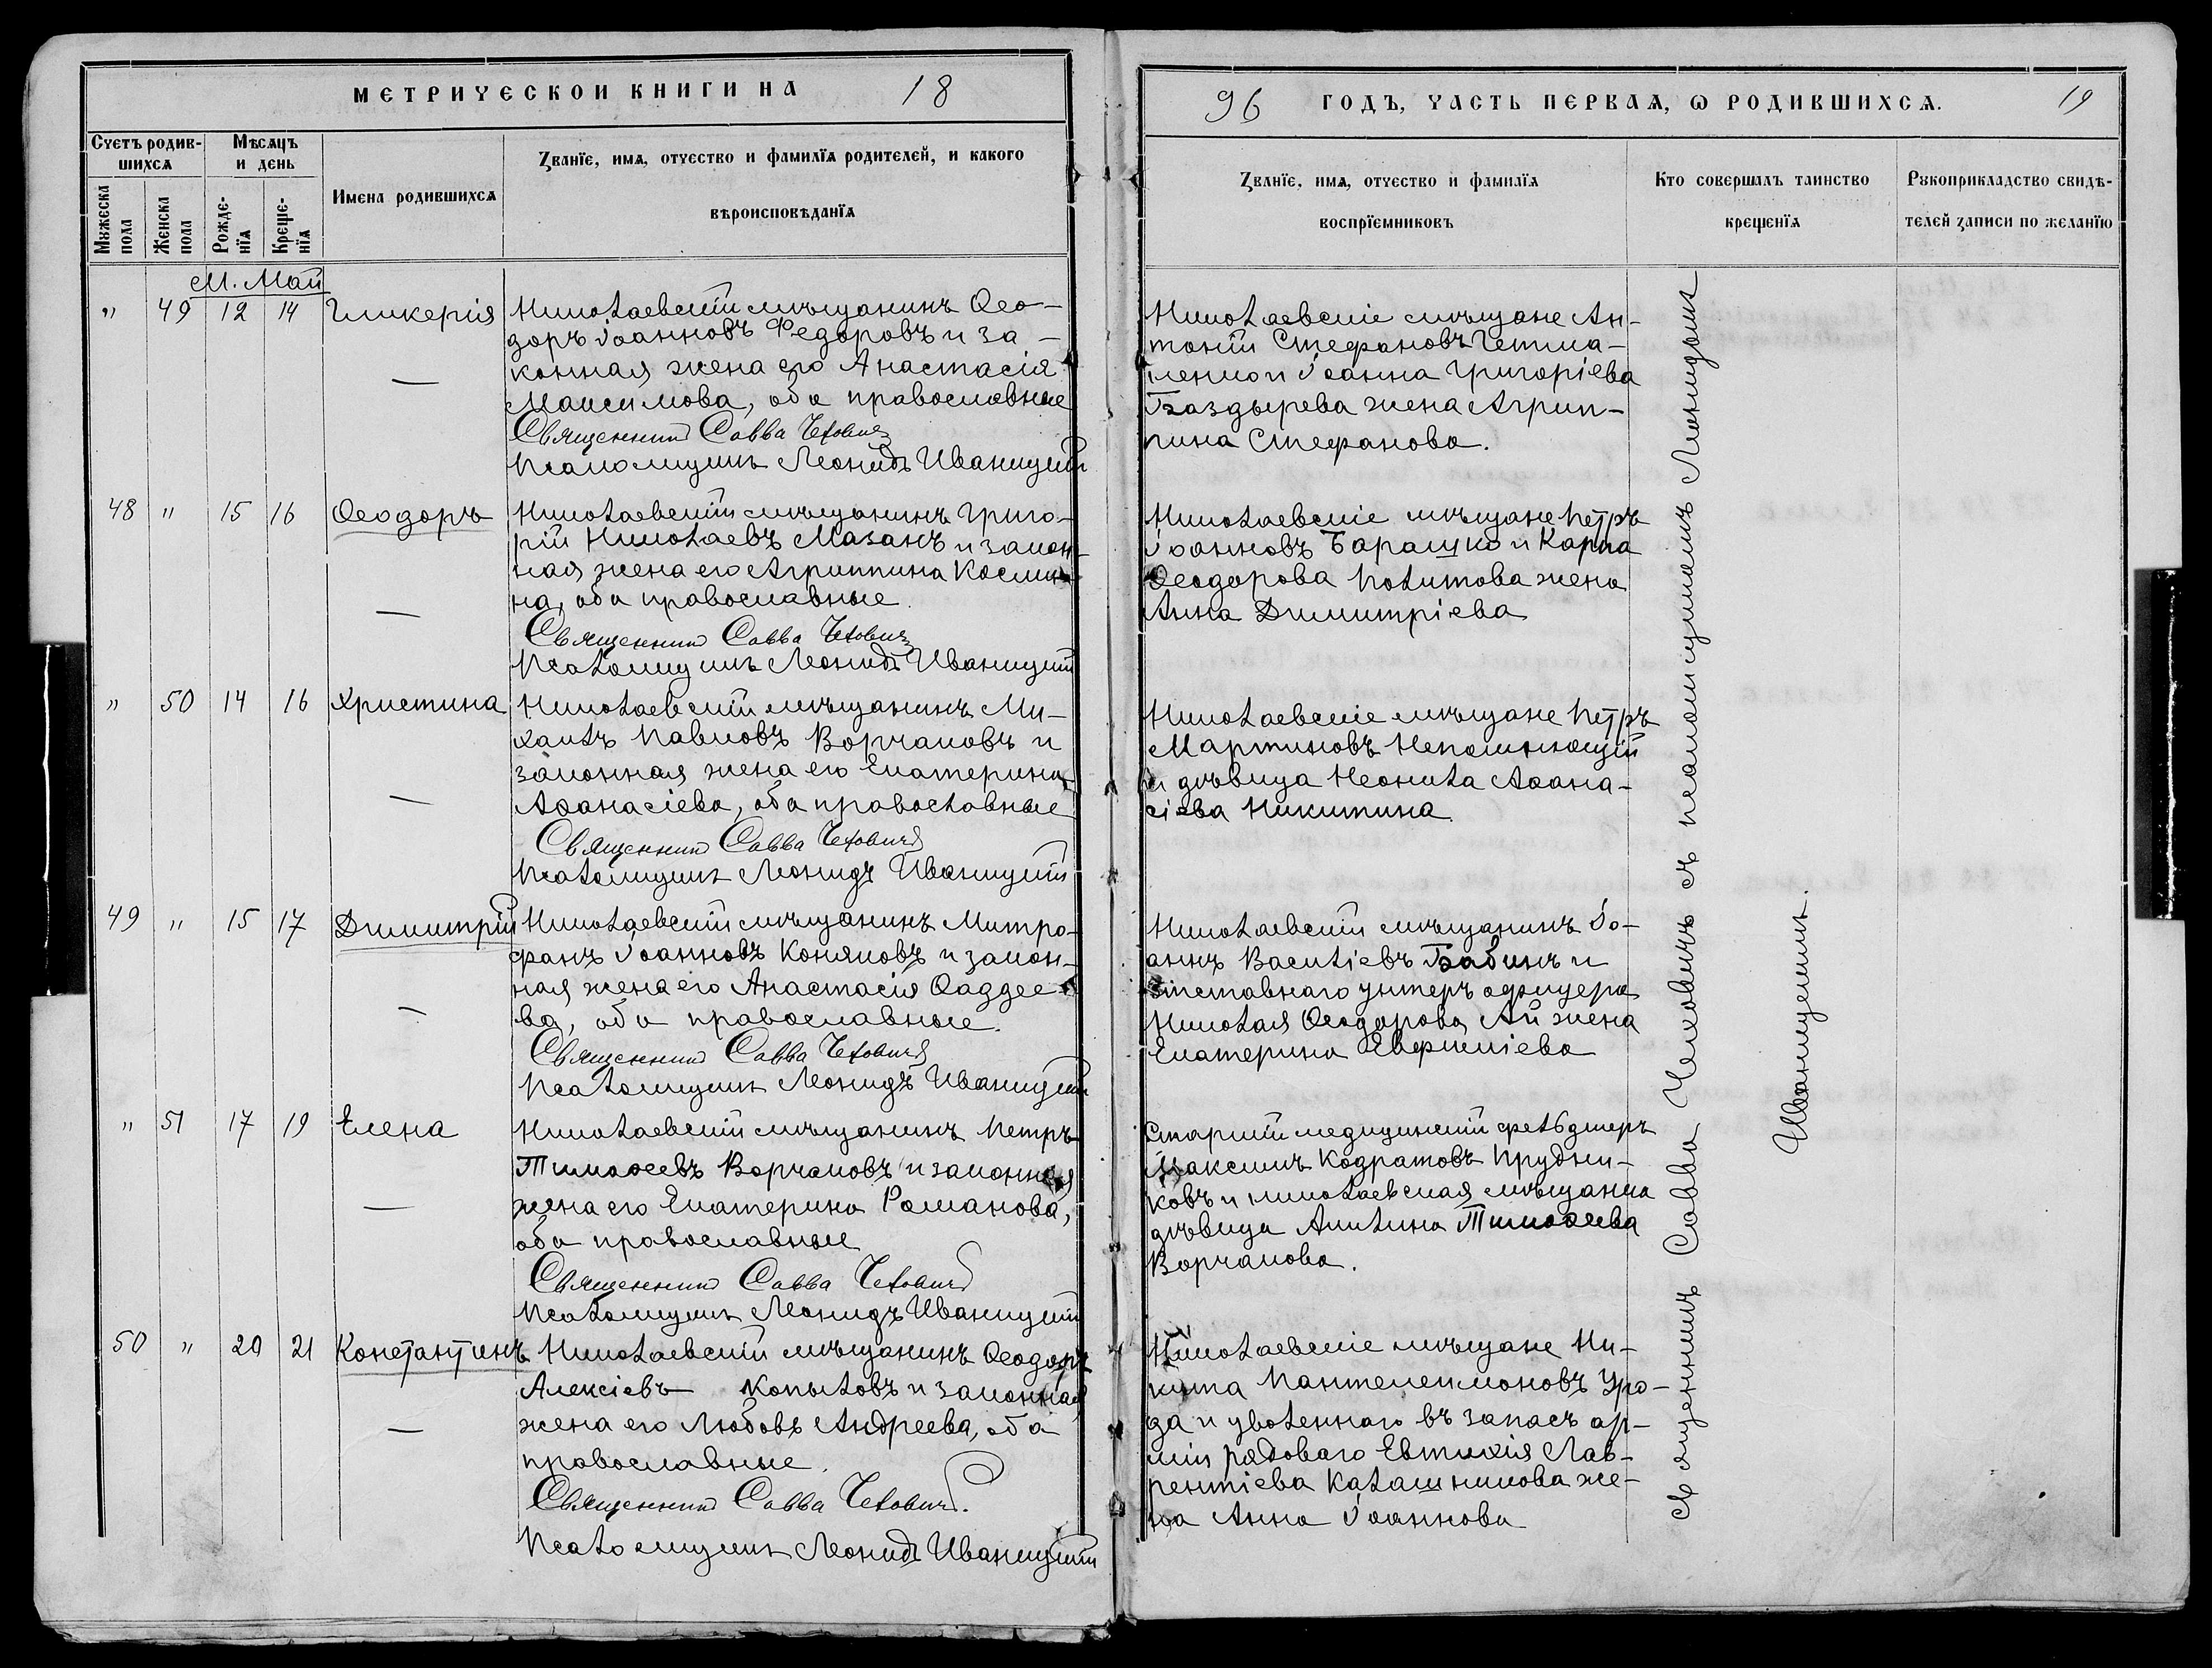 МЕТРИЧЕСКОЙ КНИГИ НА 18
96 ГОДЪ, ЧАСТЬ ПЕРВАЯ, Ѡ РОДИВШИХСЯ. 19
Счетъ родив-
шихся
Мѣсяцъ
и день
Мужеска
пола
Женска
пола
Рожде-
нїя
Креще-
нїя
Имена родившихся
Званїе, имя, отчество и фамилїя родителей, и какого
вѣроисповѣданїя
Званїе, имя, отчество и фамилїя
воспрїемниковъ
Кто совершалъ таинство
крещенїя
Рукоприкладство свидѣ-
телей записи по желанїю
М. Май
" 49 12 14 Гликерія
Николаевскій мѣщанинъ Ѳео-
доръ Іоанновъ Федоровъ и за-
конная жена его Анастасія
Максимова, оба православные
Священникъ Савва Чеховичъ
Псаломщикъ Леонидъ Иваницкій
Николаевскіе мѣщане Ан-
тоній Стефановъ
и Іоанна Григоріева
Баздырева жена Агрип-
пина Стефанова.
48 " 15 16 Ѳеодоръ
Николаевскій мѣщанинъ Григо-
рій Николаевъ Мазанъ и закон-
ная жена его Агриппина Косми-
на, оба православные.
Священникъ Савва Чеховичъ
Псаломщикъ Леонидъ Иваницкій
Николаевскіе мѣщане Петръ
Іоанновъ Барашко и Карпа
Ѳеодорова Политова жена
Анна Димитріева
" 50 14 16 Христина
Николаевскій мѣщанинъ Ми-
хаилъ Павловъ Ворчаковъ и
законная жена его Екатерина
Аѳанасіева, оба православные
Священникъ Савва Чеховичъ
Псаломщикъ Леонидъ Иваницкій
Николаевскіе мѣщане Петръ
Мартиновъ Непомнющій
и дѣвица Неонила Аѳана-
сіева Никитина
49 " 15 17 Димитрій
Николаевскій мѣщанинъ Митро-
фанъ Іоанновъ Коняковъ и закон-
ная жена его Анастасія Ѳаддее-
ва, оба православные.
Священникъ Савва Чеховичъ
Псаломщикъ Леонидъ Иваницкій
Николаевскій мѣщанинъ Іо-
аннъ Василіевъ Бабинъ и
отставнаго унтеръ офицера
Николая Ѳеодорова Ай жена
Екатерина Евфиміева
" 51 17 19 Елена
Николаевскій мѣщанинъ Петръ
Тимоѳеевъ Ворчаковъ и законная
жена его Екатерина Романова,
оба православные
Священникъ Савва Чеховичъ
Псаломщикъ Леонидъ Иваницкій
Старшій медицинскій фельдшеръ
Максимъ Кодратовъ Прудни-
ковъ и николаевская мѣщанка
дѣвица Акилина Тимоѳеева
Ворчакова.
50 " 20 21 Константинъ
Николаевскій мѣщанинъ Ѳеодоръ
Алексіевъ Копыловъ и законная
жена его Любовь Андреева, оба
православные.
Священникъ Савва Чеховичъ.
Псаломщикъ Леонидъ Иваницкій
Николаевскіе мѣщане Ни-
кита Пантелеимоновъ Уро-
да и уволеннаго въ запасъ ар-
міи рядоваго Евтихія Лав-
рентіева Калашникова же-
на Анна Іоаннова
Священникъ Савва Чеховичъ съ псаломщикомъ Леонидомъ
Иваницкимъ.